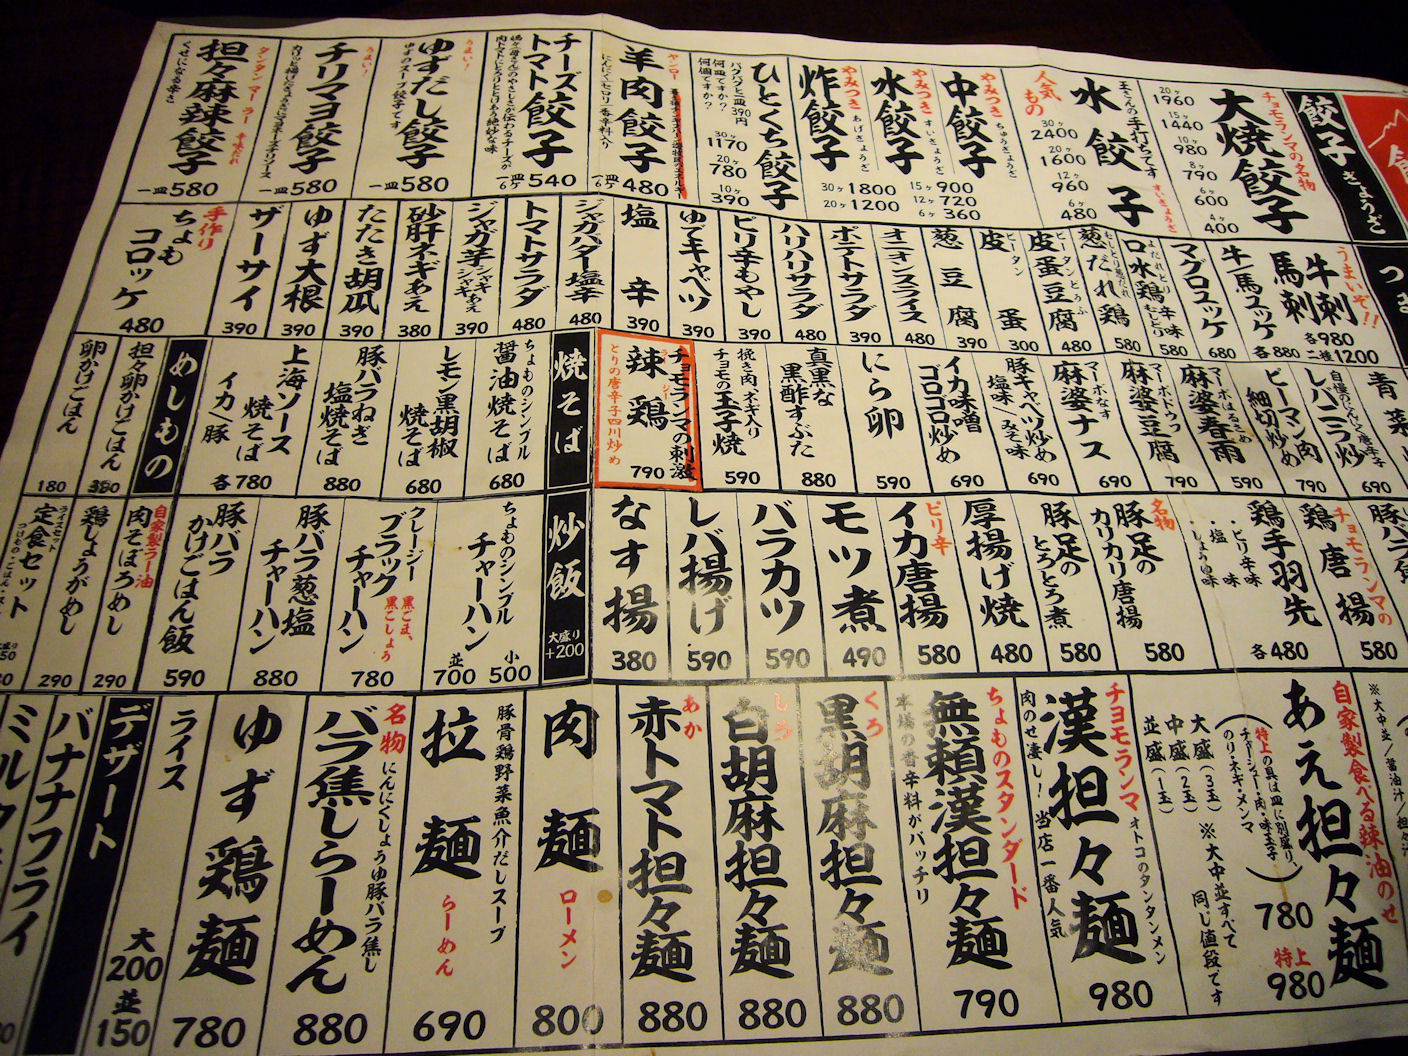 餃子 ぎょうざ
チョモランマの名物
大焼餃子
20ヶ 1960
15ヶ 1440
10ヶ 980
8ヶ 790
6ヶ 600
4ヶ 400
人気もの
水餃子
すいぎょうざ
玉さんの手打ちです
30ヶ 2400
20ヶ 1600
12ヶ 960
6ヶ 480
やみつき
中餃子
ちゅうぎょうざ
やみつき
水餃子
すいぎょうざ
15ヶ 900
12ヶ 720
6ヶ 360
やみつき
炸餃子
あげぎょうざ
30ヶ 1800
20ヶ 1200
ひとくち餃子
パクパクと一皿390円
何皿ですか?
何個ですか?
30ヶ 1170
20ヶ 780
10ヶ 390
ヤンロー
羊肉餃子
一皿 6ヶ 480
チーズ
トマト餃子
一皿 6ヶ 540
うまい!
ゆずだし餃子
ゆずのスープ餃子です
一皿 580
うまい!
チリマヨ餃子
一皿 580
タンタンマーラー 辛味だれ
担々麻辣餃子
くせになる辛さ
一皿 580
うまいぞ!!
牛刺
馬刺
各 980
二種 1200
牛ユッケ
馬ユッケ
各 880
マグロユッケ
680
よだれどり
口水鶏
辛味むしどり
580
むしどり葱だれ
葱だれ鶏
580
ピータンとうふ
皮蛋豆腐
480
ピータン
皮蛋
300
葱豆腐
390
オニオンスライス
480
ポテトサラダ
390
ハリハリサラダ
480
ピリ辛もやし
390
ゆでキャベツ
390
塩辛
390
ジャガバター塩辛
480
トマトサラダ
480
ジャガ芋
シャキシャキあえ
390
砂肝ネギあえ
380
たたき胡瓜
390
ゆず大根
390
ザーサイ
390
手作り
ちょもコロッケ
480
青菜
690
自慢のにんにく唐辛子
レバニラ炒
790
ピーマン肉
細切炒め
590
マーボはるさめ
麻婆春雨
790
マーボドウフ
麻婆豆腐
690
マーボなす
麻婆ナス
690
豚キャベツ炒め
塩味/みそ味
690
イカ味噌
ゴロゴロ炒め
690
にら卵
590
真黒な
黒酢すぶた
880
挽き肉、ネギ入り
チョモの玉子焼
590
チョモランマの刺激
辣鶏
ラージー
とりの唐辛子四川炒め
790
焼そば
ちょものシンプル
醤油焼そば
680
レモン黒胡椒
焼そば
680
豚バラねぎ
塩焼そば
880
上海ソース
焼そば
イカ/豚
各 780
めしもの
担々卵かけごはん
卵かけごはん
180
豚バラ
チョモランマの
鶏唐揚
580
鶏手羽先
・ピリ辛味
・塩味
・しょうゆ味
各 480
名物
豚足の
カリカリ唐揚
580
豚足の
とろとろ煮
580
厚揚げ焼
480
ピリ辛
イカ唐揚
580
モツ煮
490
バラカツ
590
レバ揚げ
590
なす揚
380
炒飯
大盛り
+200
ちょものシンプル
チャーハン
小 500
並 700
クレージー
ブラック
チャーハン
黒ごま、
黒こしょう
780
豚バラ葱塩
チャーハン
880
豚バラ
かけごはん飯
590
自家製ラー油
肉そぼろめし
290
鶏しょうがめし
290
ライスセット
定食セット
※大中並/醤油汁/担々汁
自家製食べる辣油のせ
あえ担々麺
特上の具は皿に別盛り、
チャーシュー・肉・味玉子
のり・ネギ・メンマ
780
特上
980
大盛(3玉)
中盛(2玉)
並盛(1玉)
※大中並すべて
同じ値段です
チョモランマ
漢担々麺
オトコのタンタンメン
肉のせ凄し! 当店一番人気
980
ちょものスタンダード
無頼漢担々麺
本場の香辛料がバッチリ
790
くろ
黒胡麻担々麺
880
しろ
白胡麻担々麺
880
あか
赤トマト担々麺
880
肉麺
ローメン
800
豚骨鶏野菜魚介だしスープ
拉麺
らーめん
690
名物
にんにくしょうゆ豚バラ焦し
バラ焦しらーめん
880
ゆず鶏麺
780
ライス
大 200
並 150
デザート
バナナフライ
ミルク